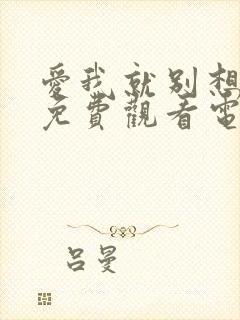 愛我就別想
免費觀看電
吕曼